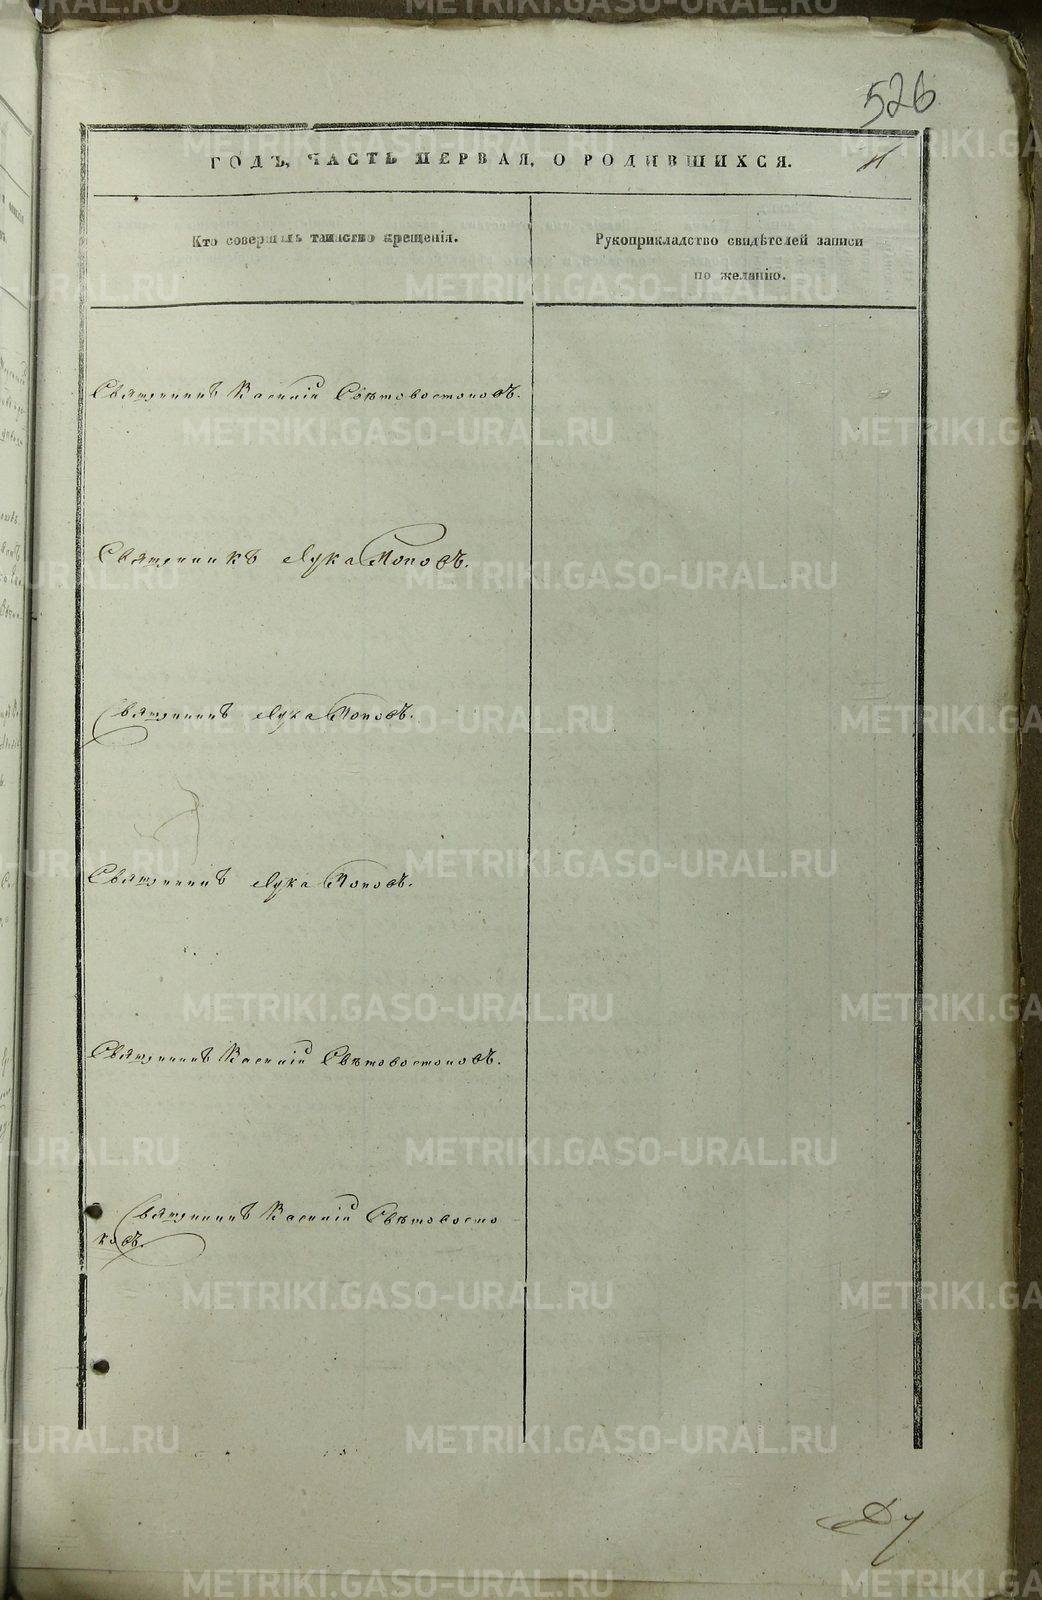 526
ГОДЪ, ЧАСТЬ ПЕРВАЯ, О РОДИВШИХСЯ.
Кто совершилъ таинство крещенія.
Рукоприкладство свидѣтелей записи
по желанію.
Священникъ Василій Свѣтовостоковъ.
Священникъ Лука Поповъ.
Священникъ Лука Поповъ.
Священникъ Лука Поповъ.
Священникъ Василій Свѣтовостоковъ.
Священникъ Василій Свѣтовосто
ковъ.
METRIKI.GASO-URAL.RU